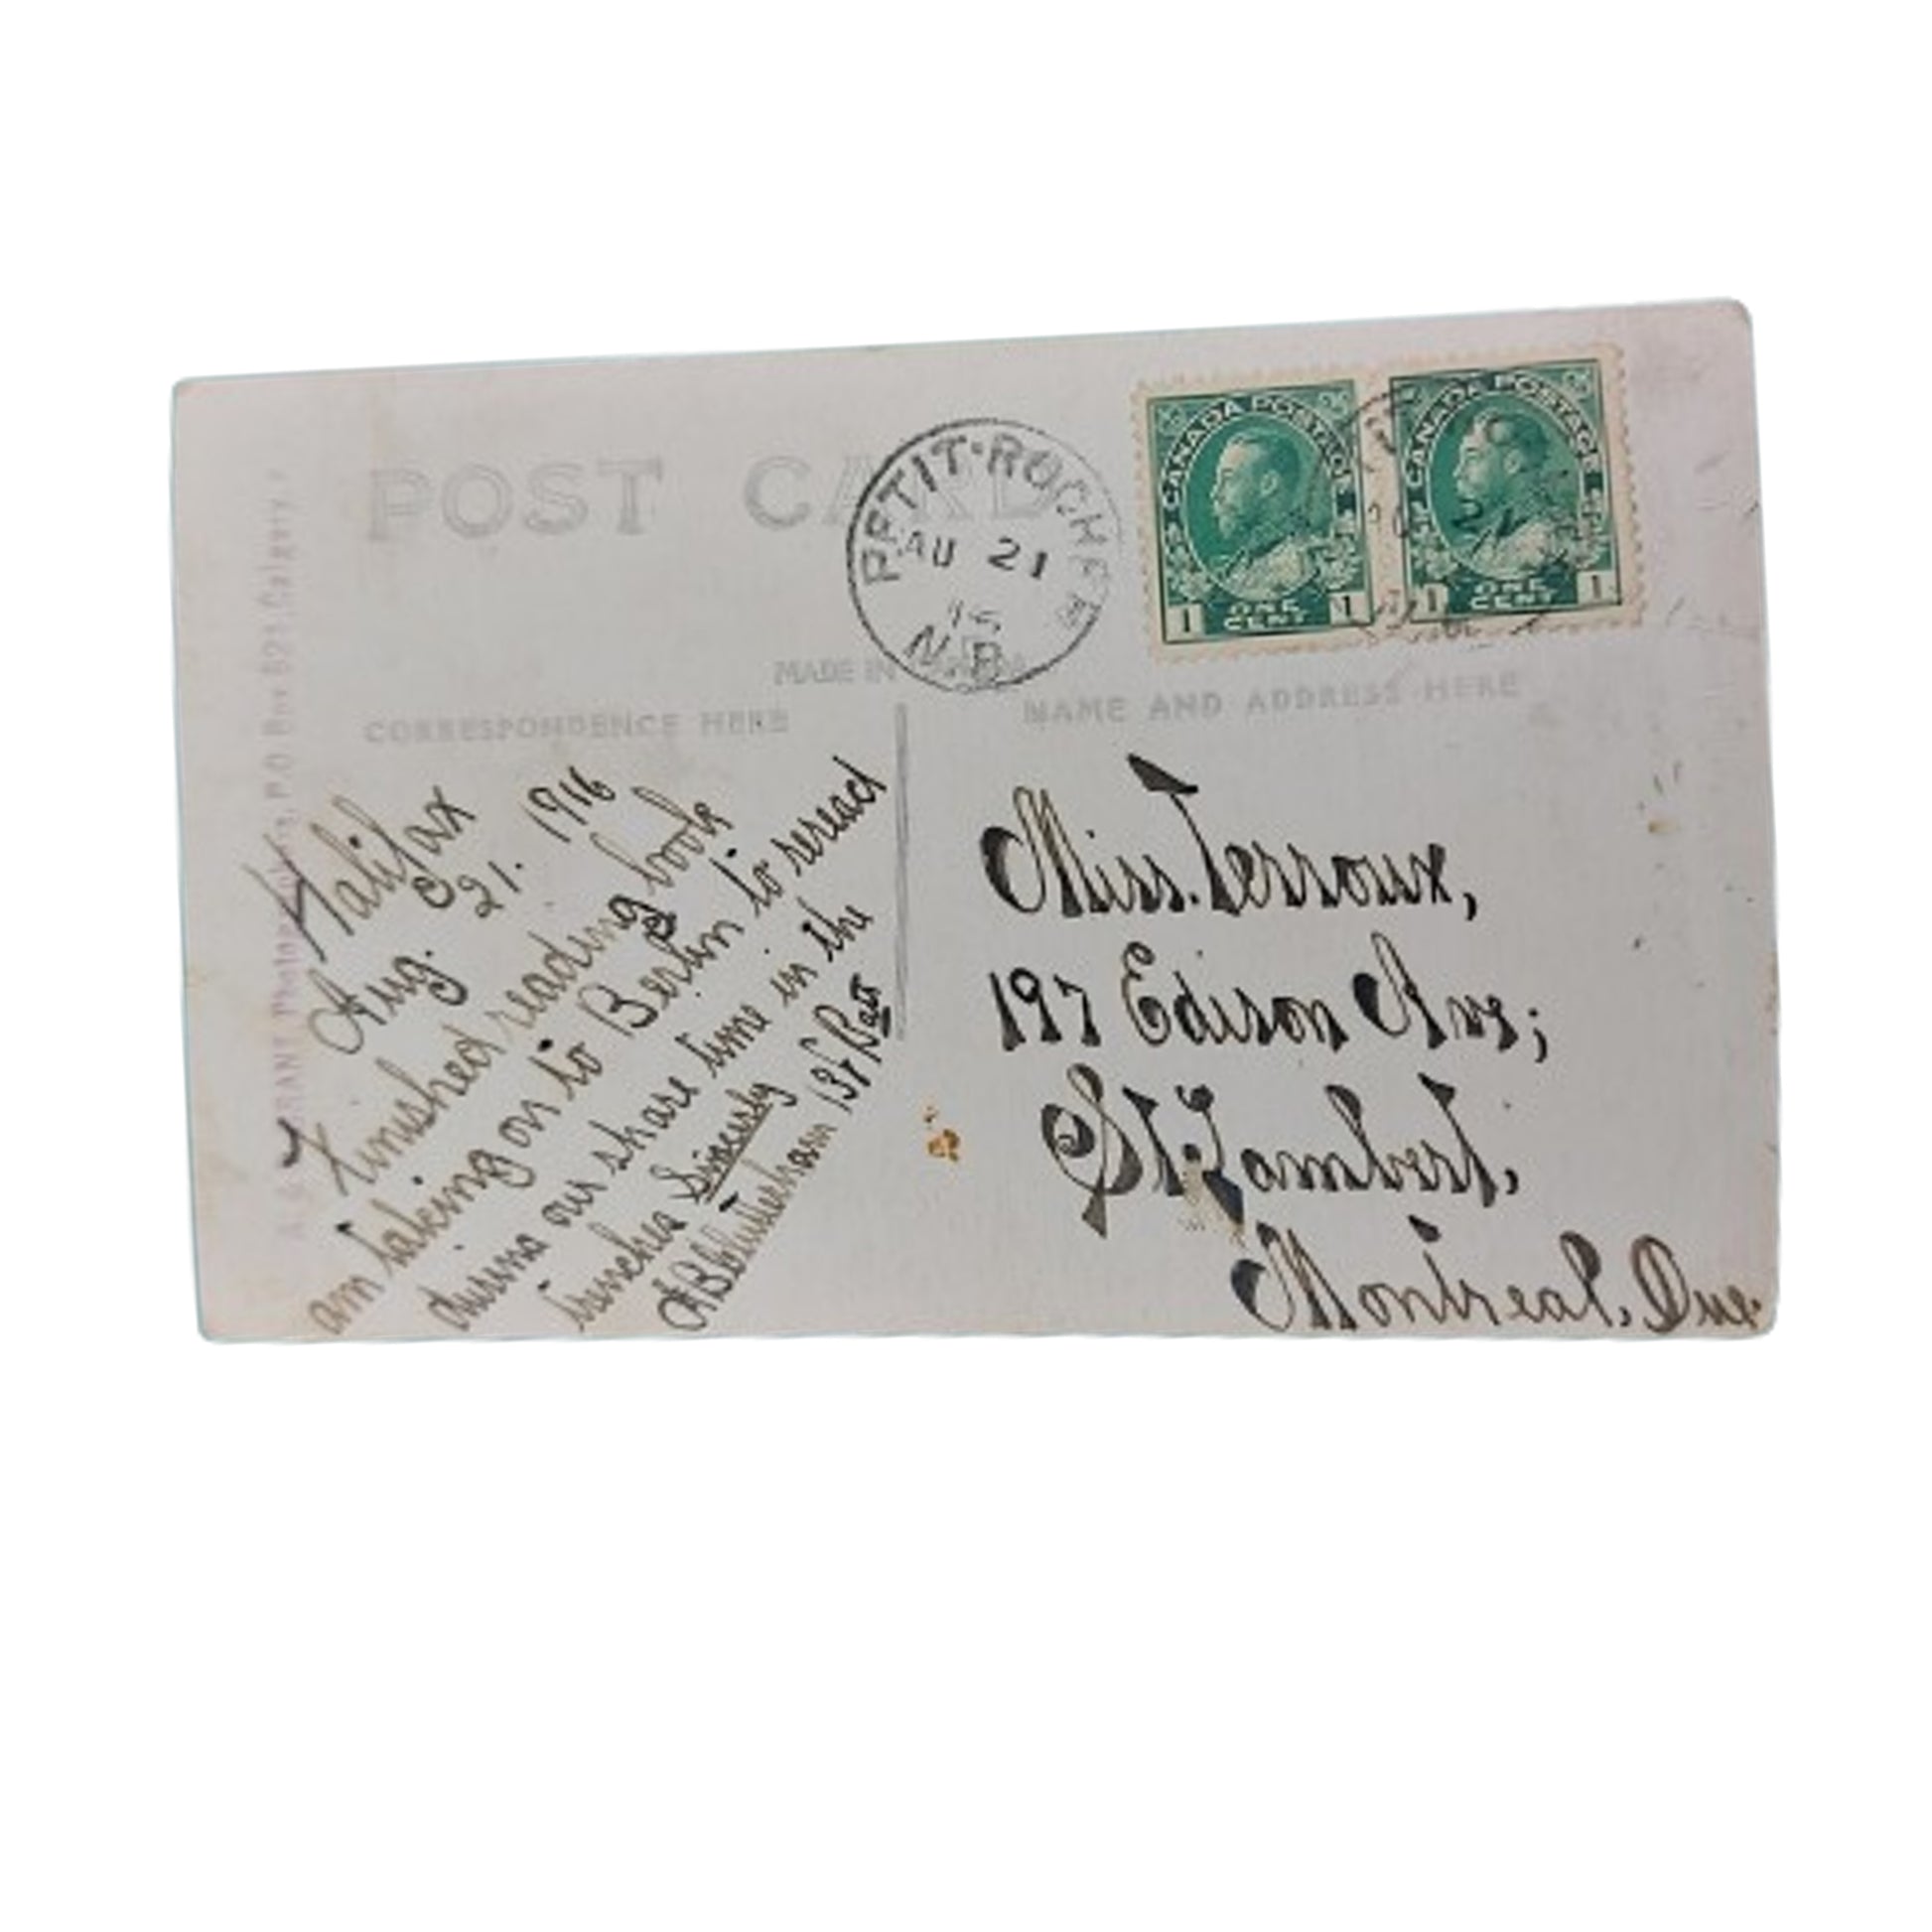 POST CARD
PETIT-ROCHER
AU 21
N.B
CANADA POSTAGE
1 ONE CENT 1
CANADA POSTAGE
1 ONE CENT 1
MADE IN
CORRESPONDENCE HERE
NAME AND ADDRESS HERE
P.O Box 821, Calgary.
Halifax
Aug. 21. 1916
Finished reading book
am taking on to Berlin to reread
during our share time in the
trenches Sincerely
137 Batt
Miss. Terroux,
197 Edison Ave;
St. Lambert,
Montreal, Que.